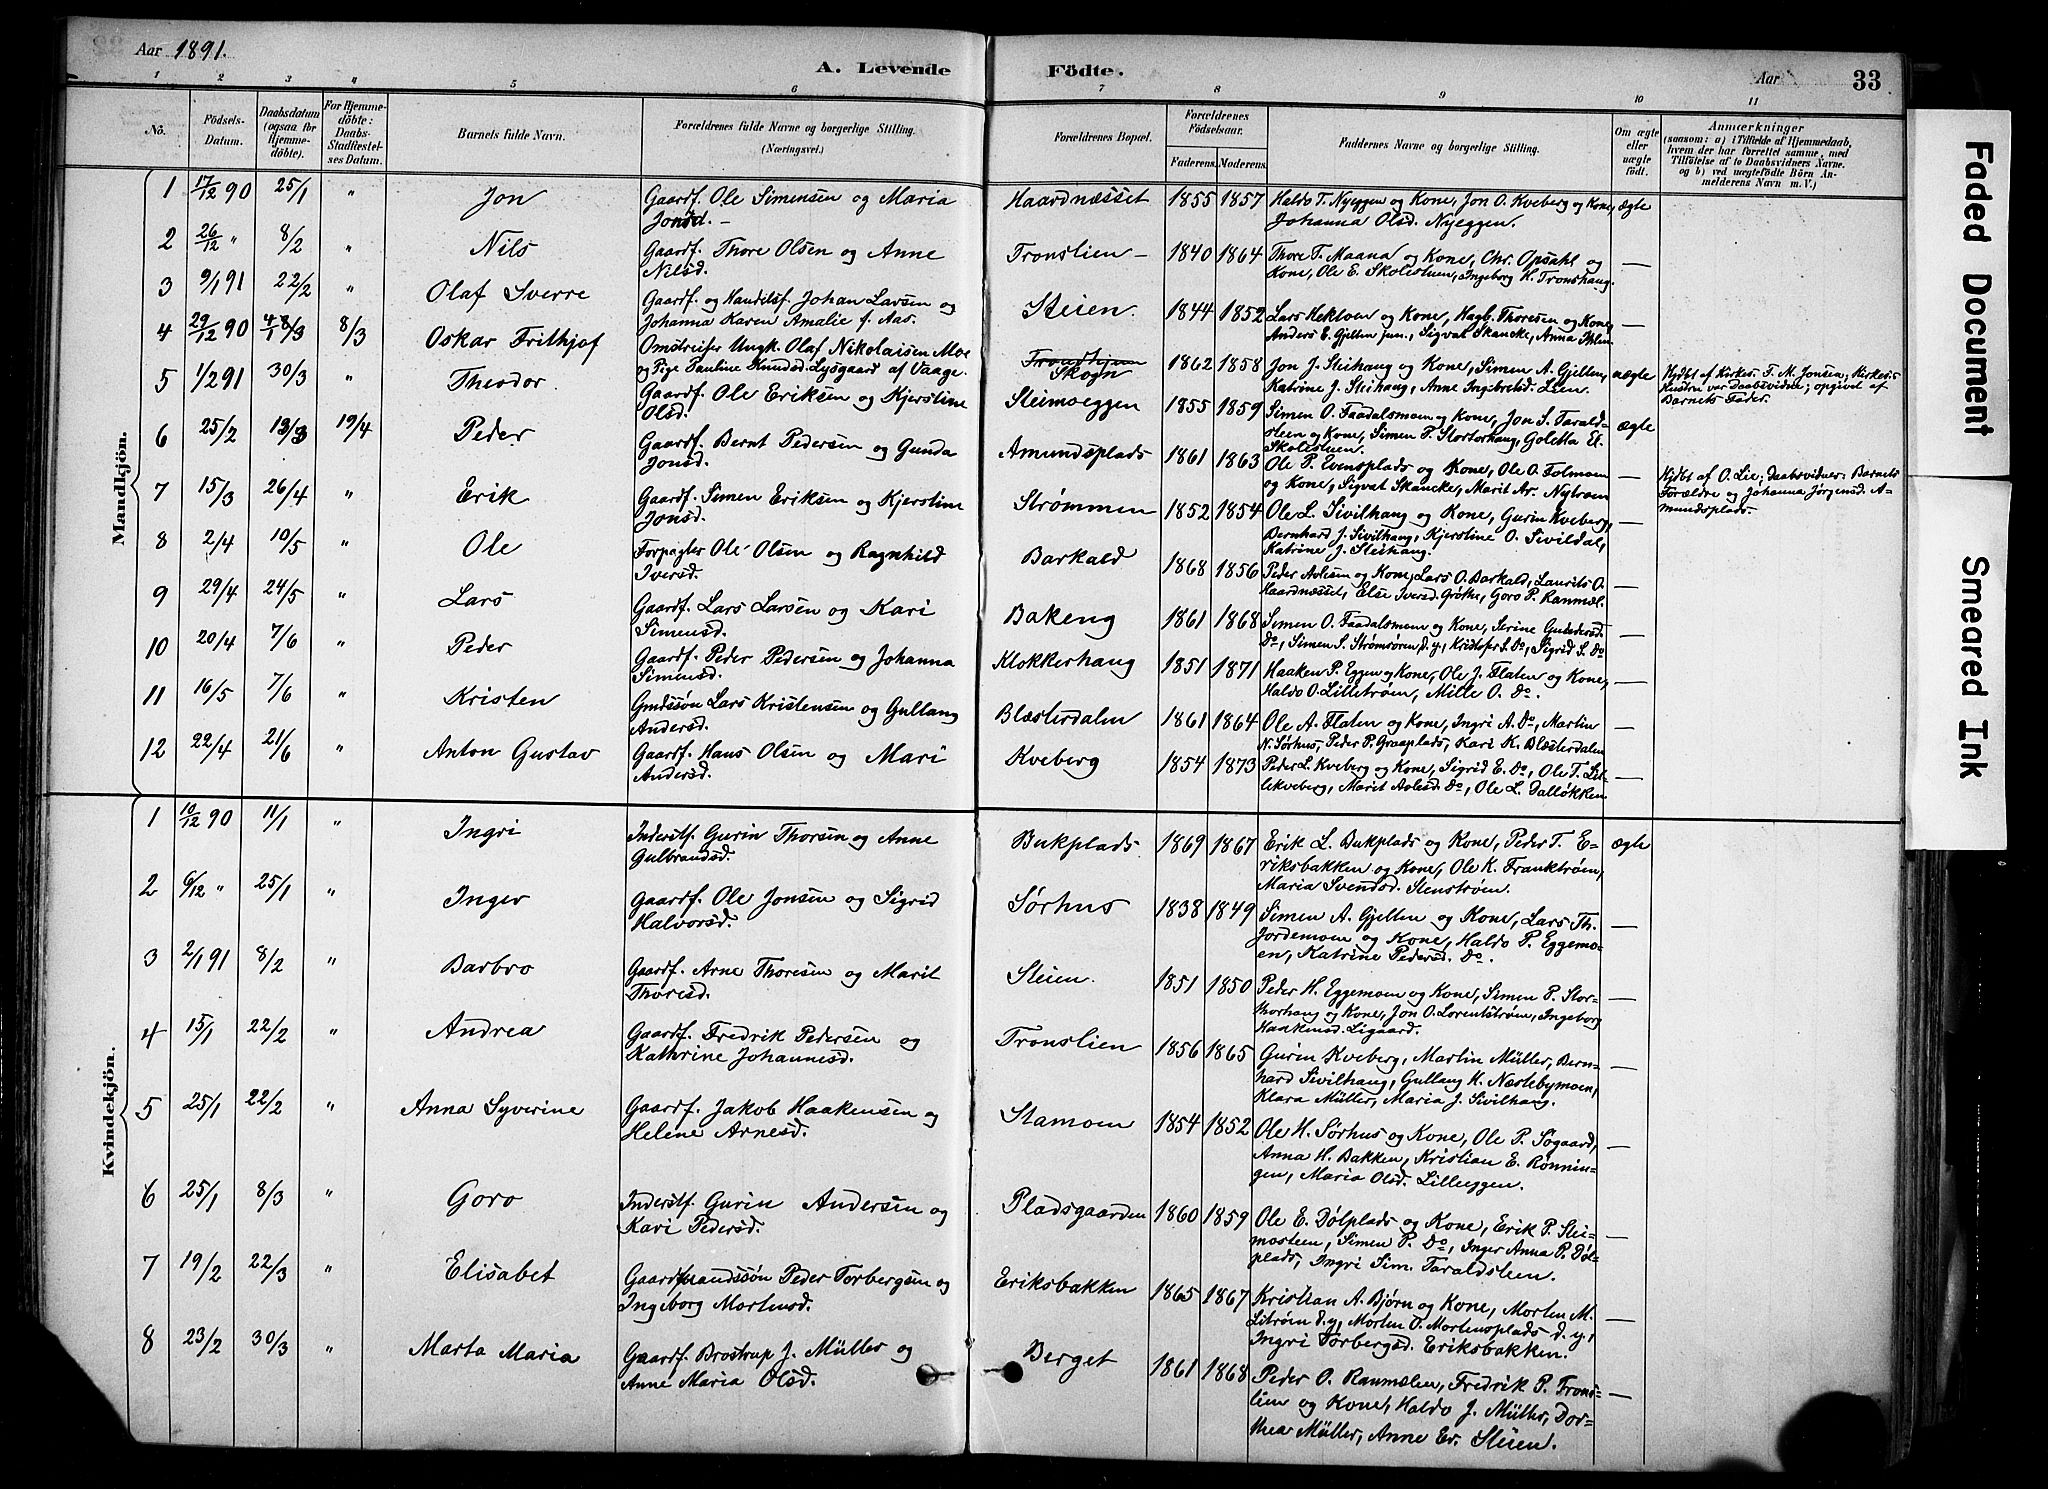 Aar 1891.
A. Levende Födte.
Aar 33
1 2 3 4 5 6 7 8 9 10 11
No.
Födsels-Datum.
Daabsdatum (ogsaa for Hjemmedöbte).
For Hjemmedöbte: Daabs-Stadfæstelses Datum.
Barnets fulde Navn.
Forældrenes fulde Navne og borgerlige Stilling. (Næringsvei.)
Forældrenes Bopæl.
Forældrenes Födselsaar.
Faderens. Moderens.
Faddernes Navne og borgerlige Stilling.
Om ægte eller uægte födt.
Anmærkninger
(saasom: a) i Tilfælde af Hjemmedaab, hvem der har forrettet samme, med Tilföielse af to Daabsvidners Navne. og b) ved uægtefödte Börn Anmelderens Navn m. V.)
Mandkjön.
1 17/12 90 25/1 " Jon Gaardf. Ole Simensen og Maria Jonsd. — Haardnæsset 1855 1857 Haldo T. Nyeggen og Kone, Jon O. Kveberg og Kone, Johanna Olsd. Nyeggen. ægte
2 26/12 " 8/2 " Nils Gaardf. Thore Olsen og Anne Nilsd. Tronslien — 1840 1864 Thore T. Maana og Kone, Chr. Opsahl og Kone, Ole E. Skolestuen, Ingeborg H. Tronshaug. —
3 9/1 91 22/2 " Olaf Sverre Gaardf. og Handelsf. Johan Larsen og Johanna Karen Amalie f. Aas. Steien. 1844 1852 Lars Hektoen og Kone, Hagb. Thoresen og Kone, Anders E. Gjelten jun., Sigvat Skancke, Anna Ihlen —
4 29/12 90 4/1 8/3 8/3 Oskar Frithjof Omstreifer Ungk. Olaf Nikolaisen Moe og Pige Pauline Knudsd. Lysgaard af Vaage. Trondhjem Skogn 1862 1858 Jon J. Steihaug og Kone, Simen A. Gjelten, Katrine J. Steihaug, Anne Ingebretsd. Lien. uægte Hjdbt af Kirkes. T. M. Jonsen; Kirkes. Hustru var Daabsvidne; opgivet af Barnets Fader.
5 1/2 91 30/3 " Theodor Gaardf. Ole Eriksen og Kjerstine Olsd. Steimoeggen 1855 1859 Simen O. Faadalsmoen og Kone, Jon S. Taraldsteen og Kone, Simen P. Stortorhaug, Goletta El. Skolestuen. ægte
6 25/2 13/3 19/4 Peder Gaardf. Bernt Pedersen og Gunda Jonsd. Amundsplads 1861 1863 Ole P. Evensplads og Kone, Ole O. Tolmoen og Kone, Sigvat Skancke, Marit Ar. Nytrøen — Hjdbt af O. Lie; Daabsvidner: Barnets Forældre og Johanna Jørgensd. Amundsplads.
7 15/3 26/4 " Erik Gaardf. Simen Eriksen og Kjerstine Jonsd. Strømmen 1852 1854 Ole L. Sivilhaug og Kone, Gurin Kveberg, Bernhard J. Sivilhaug, Kjerstine O. Sivildal, Katrine J. Steihaug. —
8 2/4 10/5 " Ole Forpagter Ole Olsen og Ragnhild Iversd. Barkald 1868 1856 Peder Aolesen og Kone, Lars O. Barkald, Laurits O. Haardnæsset, Else Iversd. Grøtte, Goro P. Raumæl. —
9 29/4 24/5 " Lars Gaardf. Lars Larsen og Kari Simensd. Bakeng 1861 1868 Simen O. Faadalsmoen og Kone, Serine Gundersd. Do, Simen S. Strømsøren d.y., Kristofer S. Do, Sigrid S. Do —
10 20/4 7/6 " Peder Gaardf. Peder Pedersen og Johanna Simensd. Klokkerhaug 1851 1871 Haaken P. Eggen og Kone, Ole J. Flaten og Kone, Haldo O. Lilletrøen, Mille O. Do. —
11 16/5 7/6 " Kristen Gmdssøn Lars Kristensen og Gullaug Andersd. Blæsterdalen 1861 1864 Ole A. Flaten og Kone, Ingri A. Do, Martin N. Sørhus, Peder P. Graaplads, Kari K. Blæsterdalen —
12 22/4 21/6 " Anton Gustav Gaardf. Hans Olsen og Mari Andersd. Kveberg 1854 1873 Peder L. Kveberg og Kone, Sigrid E. Do, Ole T. Lillekveberg, Marit Aolesd. Do, Ole L. Dalløkken —
Kvindekjön.
1 10/12 90 11/1 " Ingri Inderstf. Gurin Thorsen og Anne Gulbrandsd. Bukplads 1869 1867 Erik L. Bukplads og Kone, Peder T. Eriksbakken og Kone, Ole K. Franktrøen, Maria Svendsd. Stenstrøen. ægte
2 6/12 " 25/1 " Inger Gaardf. Ole Jonsen og Sigrid Halvorsd. Sørhus 1838 1849 Simen A. Gjelten og Kone, Lars Th. Jordemoen og Kone, Haldo P. Eggemoen, Katrine Pedersd. Do. —
3 2/1 91 8/2 " Barbro Gaardf. Arne Thoresen og Marit Thoresd. Steien. 1851 1850 Peder H. Eggemoen og Kone, Simen P. Stortorhaug og Kone, Jon O. Lorentstrøen, Ingeborg Haakensd. Ligaard. —
4 15/1 22/2 " Andrea Gaardf. Fredrik Pedersen og Kathrine Johannesd. Tronslien 1856 1865 Gurin Kveberg, Martin Müller, Bernhard Sivilhaug, Gullaug H. Næstebymoen, Klara Müller, Maria J. Sivilhaug. —
5 25/1 22/2 " Anna Syverine Gaardf. Jakob Haakensen og Helene Arnesd. Stamoen 1854 1852 Ole H. Sørhus og Kone, Ole P. Søgaard, Anna H. Bakken, Kristian E. Rønningen, Maria Olsd. Lilleeggen. —
6 25/1 8/3 " Goro Inderstf. Gurin Andersen og Kari Pedersd. Pladsgaarden 1860 1859 Ole E. Dølplads og Kone, Erik P. Steimosteen, Simen P. Do, Inger Anna P. Dølplads, Ingri Sim. Taraldsteen. —
7 19/2 22/3 " Elisabet Gaardmandssøn Peder Torbergsen og Ingeborg Mortensd. Eriksbakken 1865 1867 Kristian A. Bjørn og Kone, Morten M. Litrøen d.y., Morten O. Mortensplads d.y., Ingri Torbergsd. Eriksbakken. —
8 23/2 30/3 " Marta Maria Gaardf. Brostrup J. Müller og Anne Maria Olsd. Berget 1861 1868 Peder O. Raumælen, Fredrik P. Tronslien og Kone, Haldo J. Müller, Dorthea Müller, Anne Er. Steien. —
Faded Document
Smeared Ink